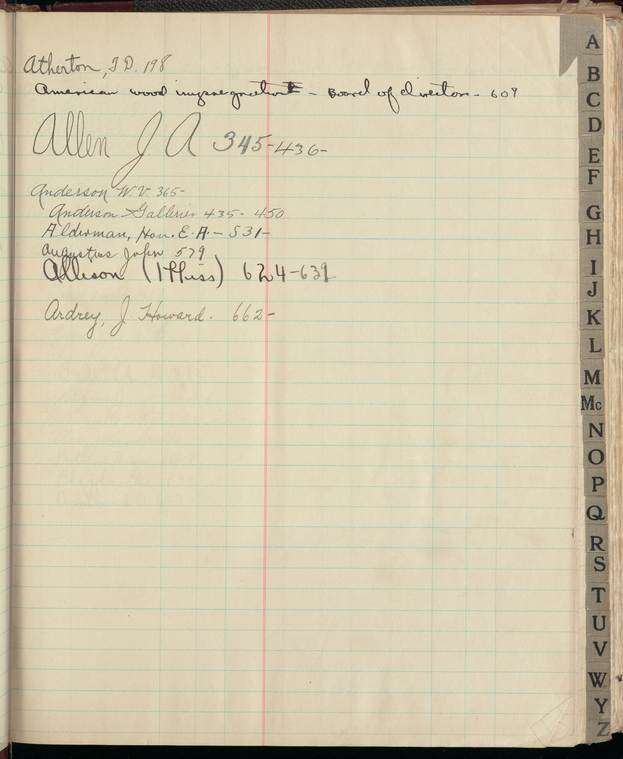 Atherton, F.D. 198
American wood impregnation - Board of directors - 609
Allen J A 345-436-
Anderson W.V. 365-
Anderson Galleries 435- 450
Alderman, Hon. E.A. - 531-
Augustus John 579
Allison (Miss) 624-639
Ardrey, J Howard. 662-
A
B
C
D
E
F
G
H
I
J
K
L
M
Mc
N
O
P
Q
R
S
T
U
V
W
Y
Z